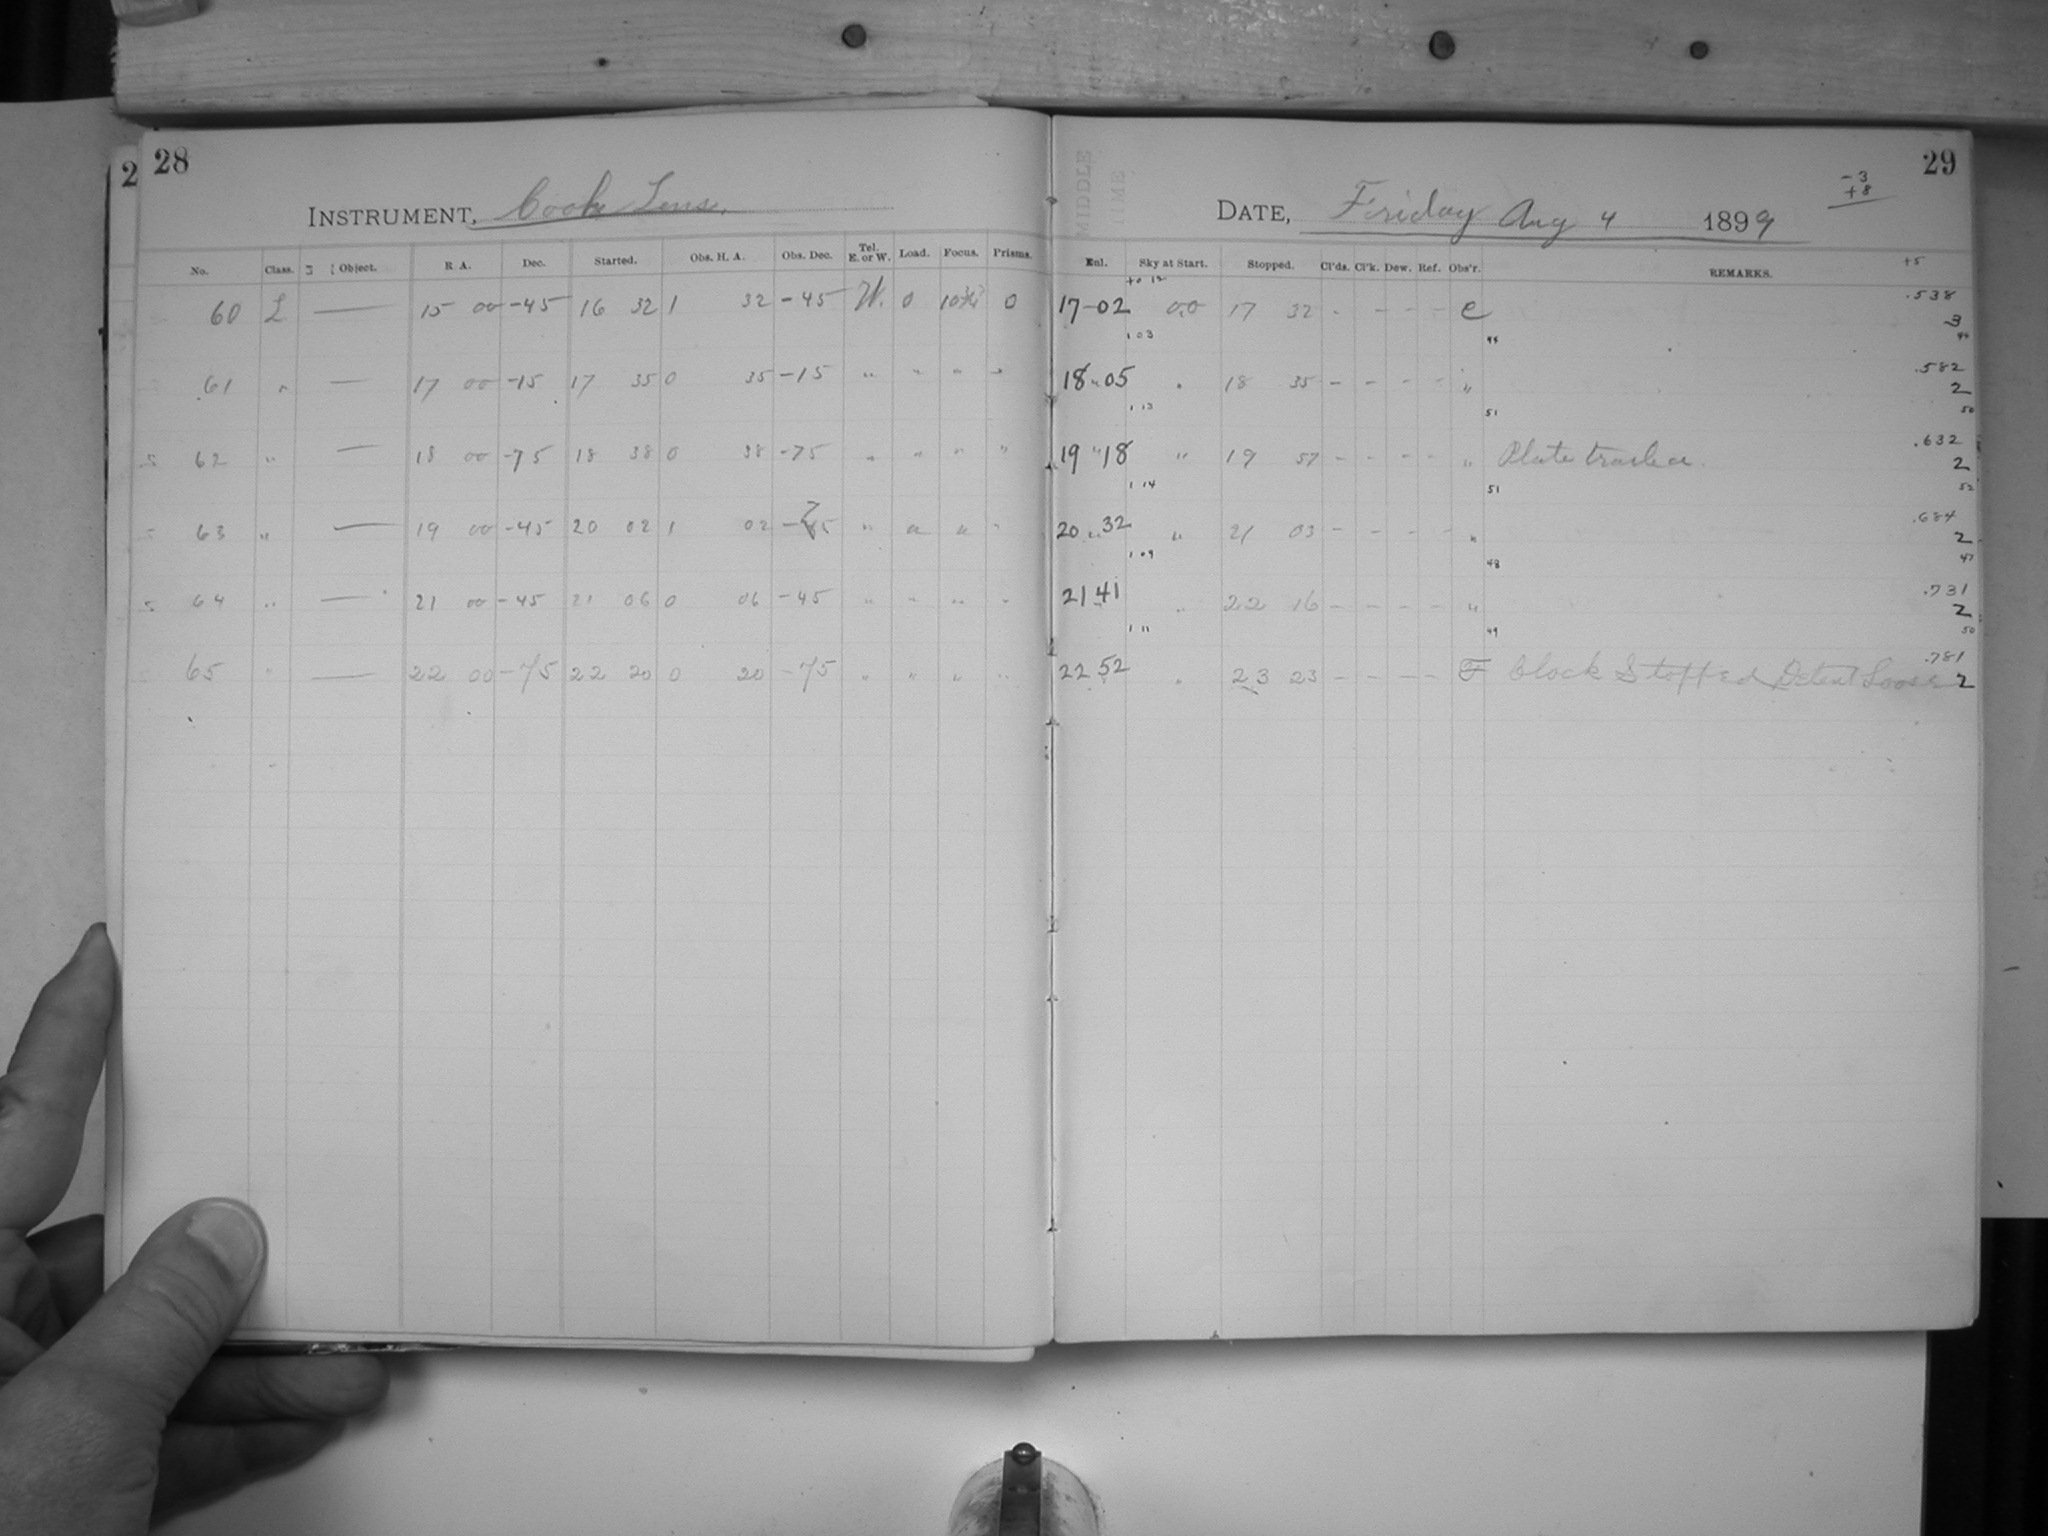 2 28
INSTRUMENT, Cook Lens.
No. Class. Object. R. A. Dec. Started. Obs. H. A. Obs. Dec. Tel. E. or W. Load. Focus. Prisms.
60 L — 15 00 -45 16 32 1 32 -45 W. 0 0
61 " — 17 00 -15 17 35 0 35 -15 " " " "
62 " — 18 00 -75 18 38 0 38 -75 " " " "
63 " — 19 00 -45 20 02 1 02 " " " "
64 " — 21 00 -45 21 06 0 06 -45 " " " "
65 " — 22 00 -75 22 20 0 20 -75 " " " "
MIDDLE TIME
29
-3
+8
DATE, Friday Aug 4 1899
+5
Enl. Sky at Start. Stopped. Cl'ds. Cl'k. Dew. Ref. Obs'r. REMARKS.
17-02 0.0 17 32 - - - - C .538
3
1 03 44 44
18 " 05 " 18 35 - - - - " .582
2
1 13 51 50
19 " 18 " 19 57 - - - - " Plate .632
2
1 14 51 52
20 " 32 " 21 03 - - - - " .684
2
1 09 48 47
21 41 " 22 16 - - - - " .731
2
1 11 49 50
22 52 " 23 23 - - - - F Clock Stopped Detent Loose .781
2